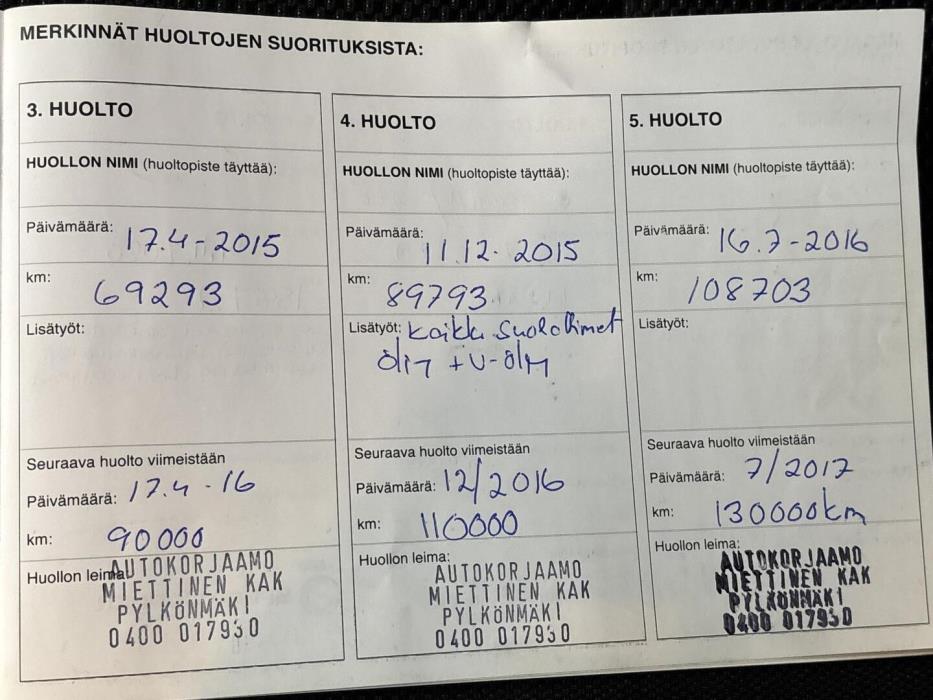 MERKINNÄT HUOLTOJEN SUORITUKSISTA:
3. HUOLTO
HUOLLON NIMI (huoltopiste täyttää):
Päivämäärä: 17.4-2015
km: 69293
Lisätyöt:
Seuraava huolto viimeistään
Päivämäärä: 17.4-16
km: 90000
Huollon leima:
AUTOKORJAAMO
MIETTINEN KAK
PYLKÖNMÄKI
0400 017930
4. HUOLTO
HUOLLON NIMI (huoltopiste täyttää):
Päivämäärä: 11.12.2015
km: 89793
Lisätyöt:
Seuraava huolto viimeistään
Päivämäärä: 12/2016
km: 110000
Huollon leima:
AUTOKORJAAMO
MIETTINEN KAK
PYLKÖNMÄKI
0400 017930
5. HUOLTO
HUOLLON NIMI (huoltopiste täyttää):
Päivämäärä: 16.7-2016
km: 108703
Lisätyöt:
Seuraava huolto viimeistään
Päivämäärä: 7/2017
km: 130000km
Huollon leima:
AUTOKORJAAMO
MIETTINEN KAK
PYLKÖNMÄKI
0400 017930